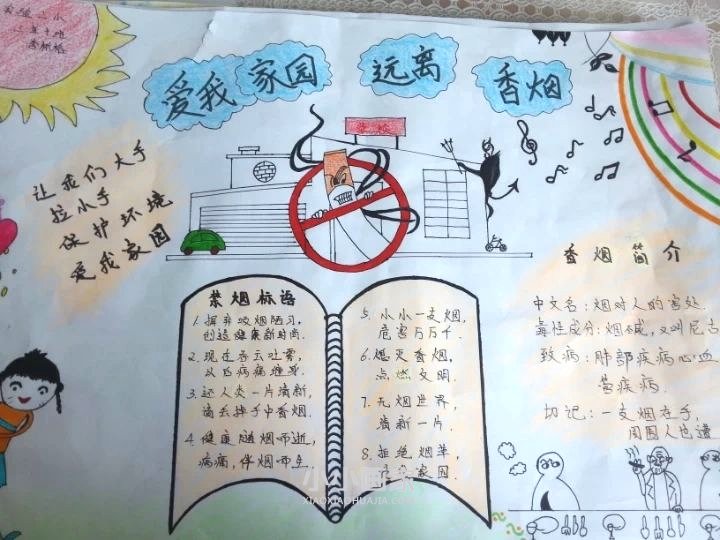 爱我家园 远离 香烟
让我们大手
拉小手
保护环境
爱我家园
禁烟标语
1. 摒弃吸烟陋习,
创造健康新时尚.
2. 现在吞云吐雾,
以后病痛难寻.
3. 还人类一片清新,
滴去掉手中香烟.
4. 健康随烟而逝,
病痛,伴烟而生.
5. 小小一支烟,
危害万万千.
6. 熄灭香烟,
点燃文明.
7. 无烟世界,
清新一片.
8. 拒绝烟草,
家园.
香烟简介
中文名:烟对人的害处
毒性成分:烟碱,又叫尼古
致病:肺部疾病心血
管疾病.
切记:一支烟在手,
周围人也遭
小小画家
XIAOXIAOHUAJIA.COM